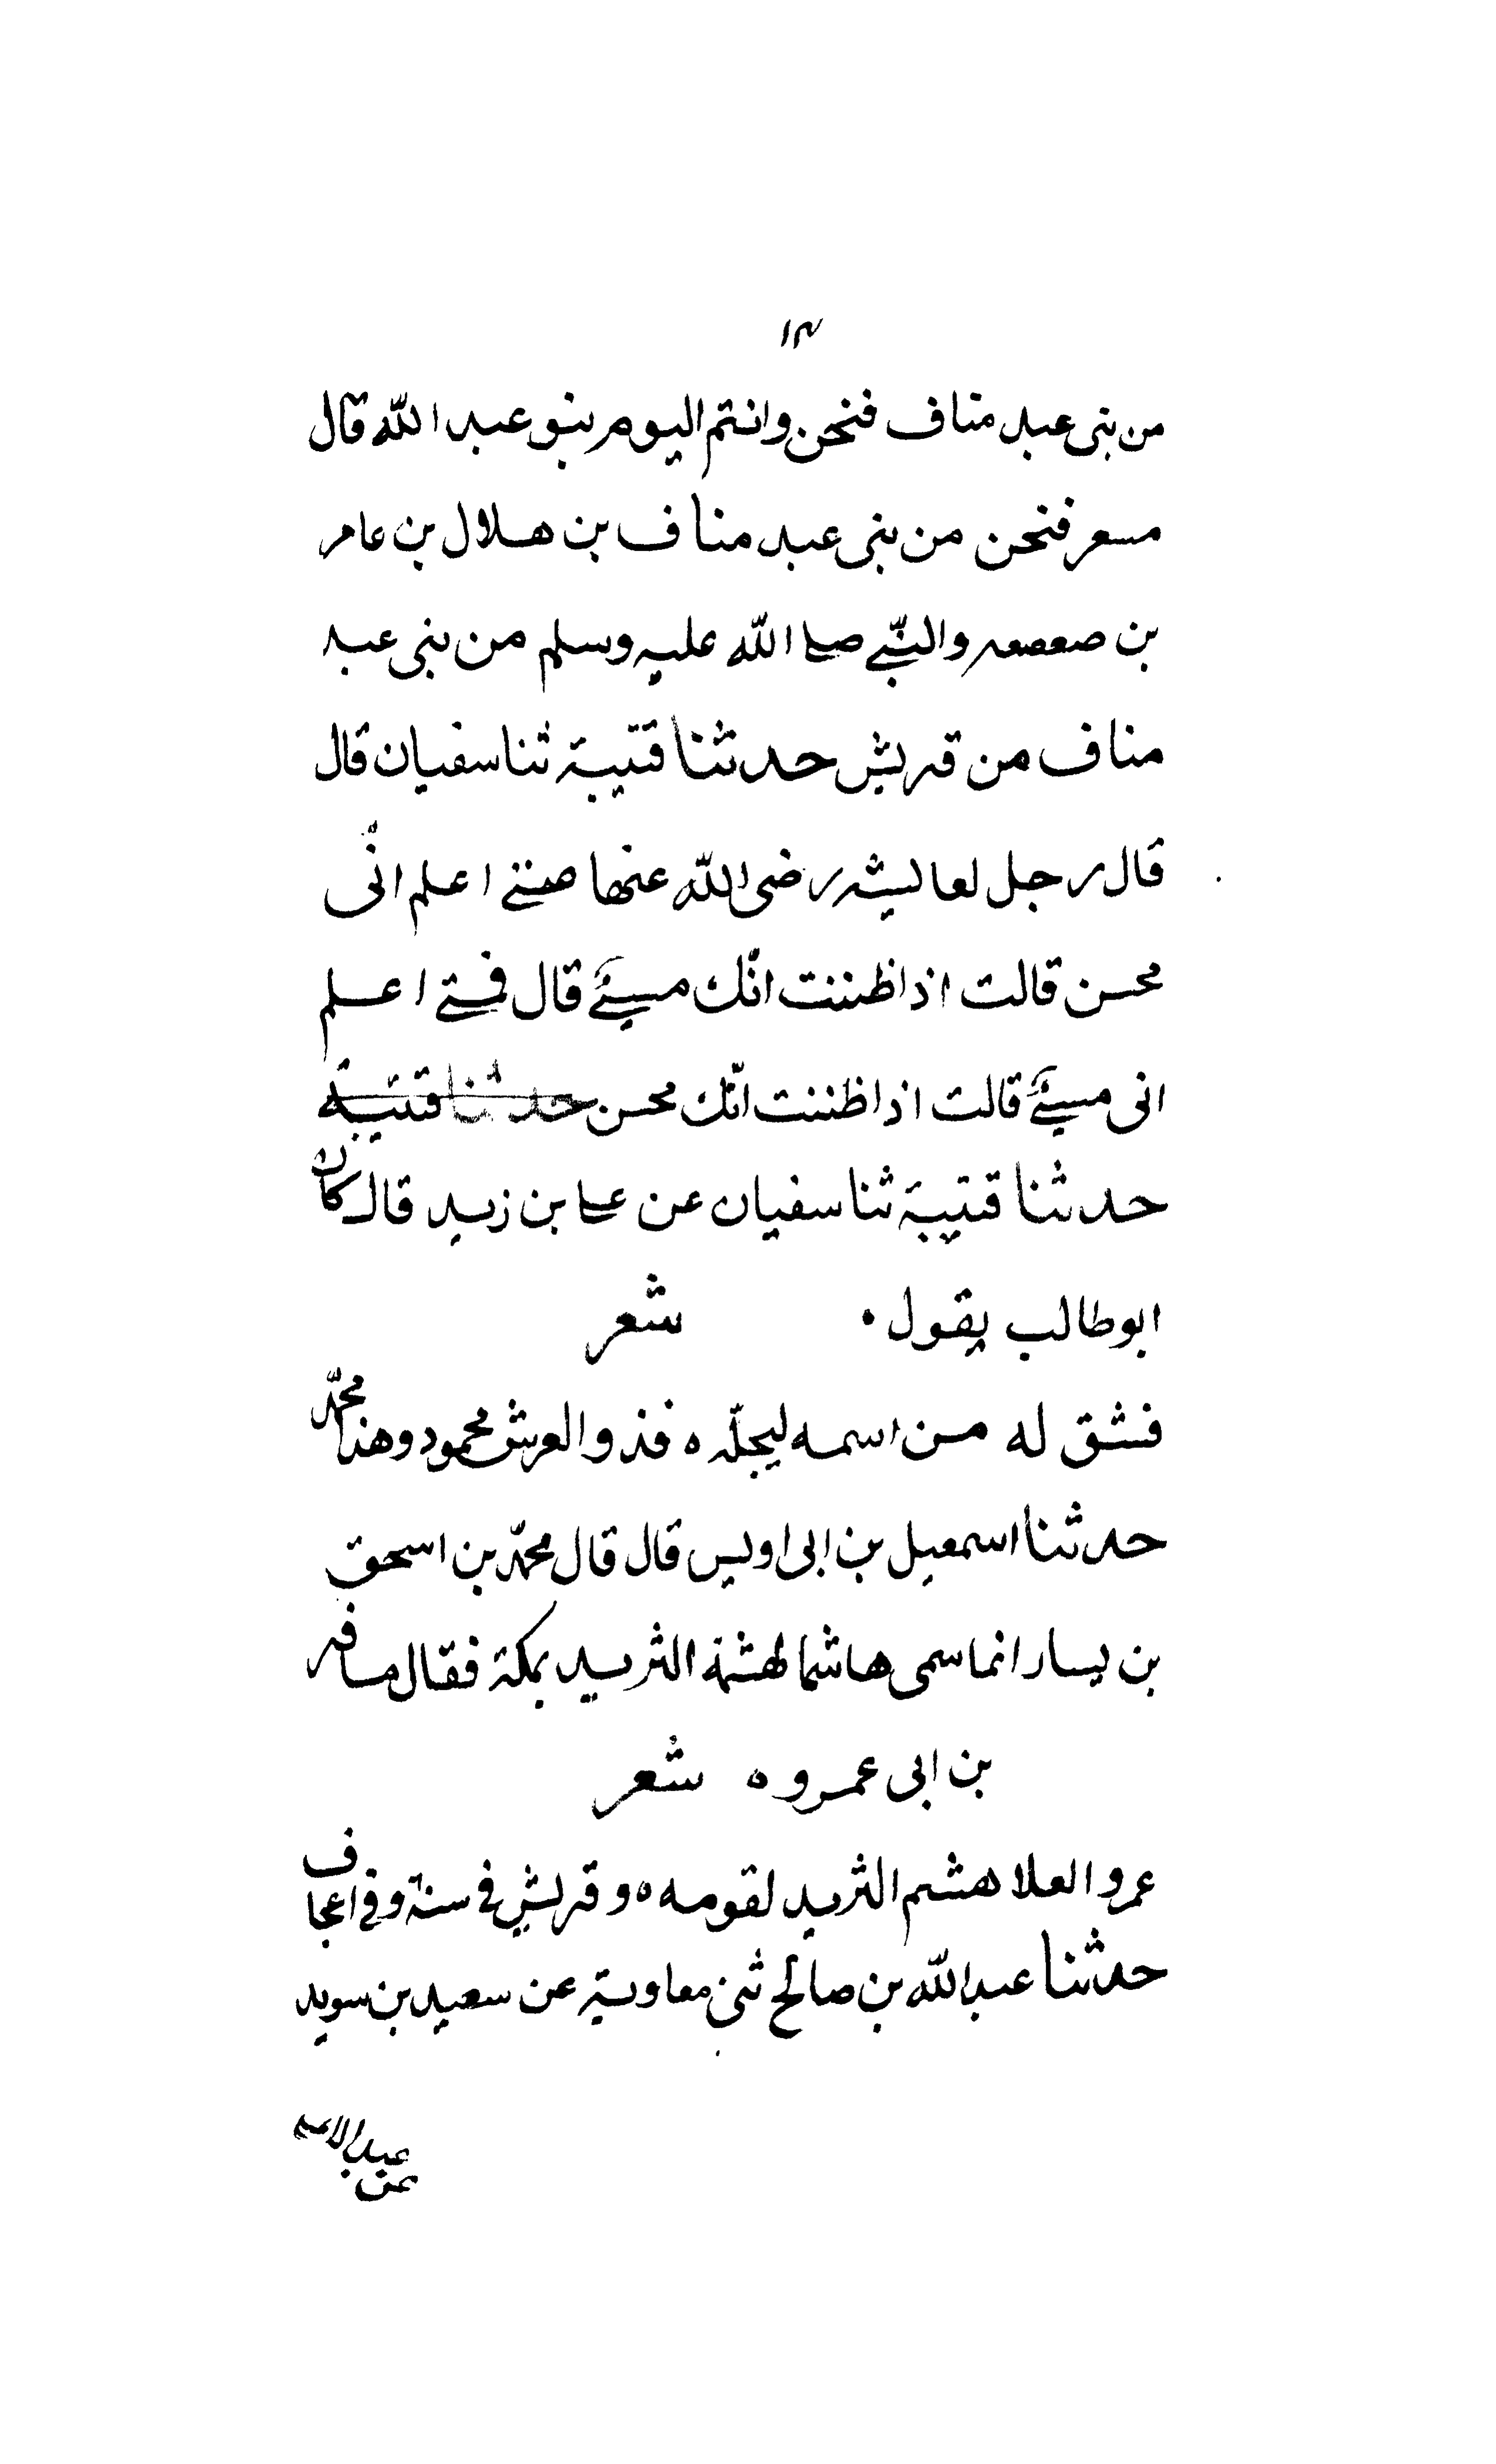 ١٣
من بنى عبد مناف فنحن وانتم اليوم بنو عبد الله قال
مسعر فنحن من بنى عبد مناف بن هلال بن عامر
بن صعصعه والنبّي صلى الله عليه وسلم من بنى عبد
مناف من قريش حدثنا قتيبة ثنا سفيان قال
قال رجل لعايشه رضى الله عنها متى اعلم انّى
محسن قالت اذا ظننت انّك مسيئ قال فمتى اعلم
انى مسيئ قالت اذا ظننت انّك محسن حدثنا قتيبة
حدثنا قتيبة ثنا سفيان عن على بن زيد قال كان
ابو طالب يقول . شعر
فشق له من اسمه ليجلّه ه فذو العرش محمود وهذا محمّد
حدثنا اسمعيل بن ابى اويس قال قال محمّد بن اسحق
بن يسار انما سمى هاشما لهشمة الثريد بمكة فقال مسافر
بن ابى عمرو ه شعر
عمرو العلا هشم الثريد لقومه ه وقريش في سنة وفي اعجاف
حدثنا عبد الله بن صالح ثنى معاوية عن سعيد بن سويد
عن عبد الاعلى